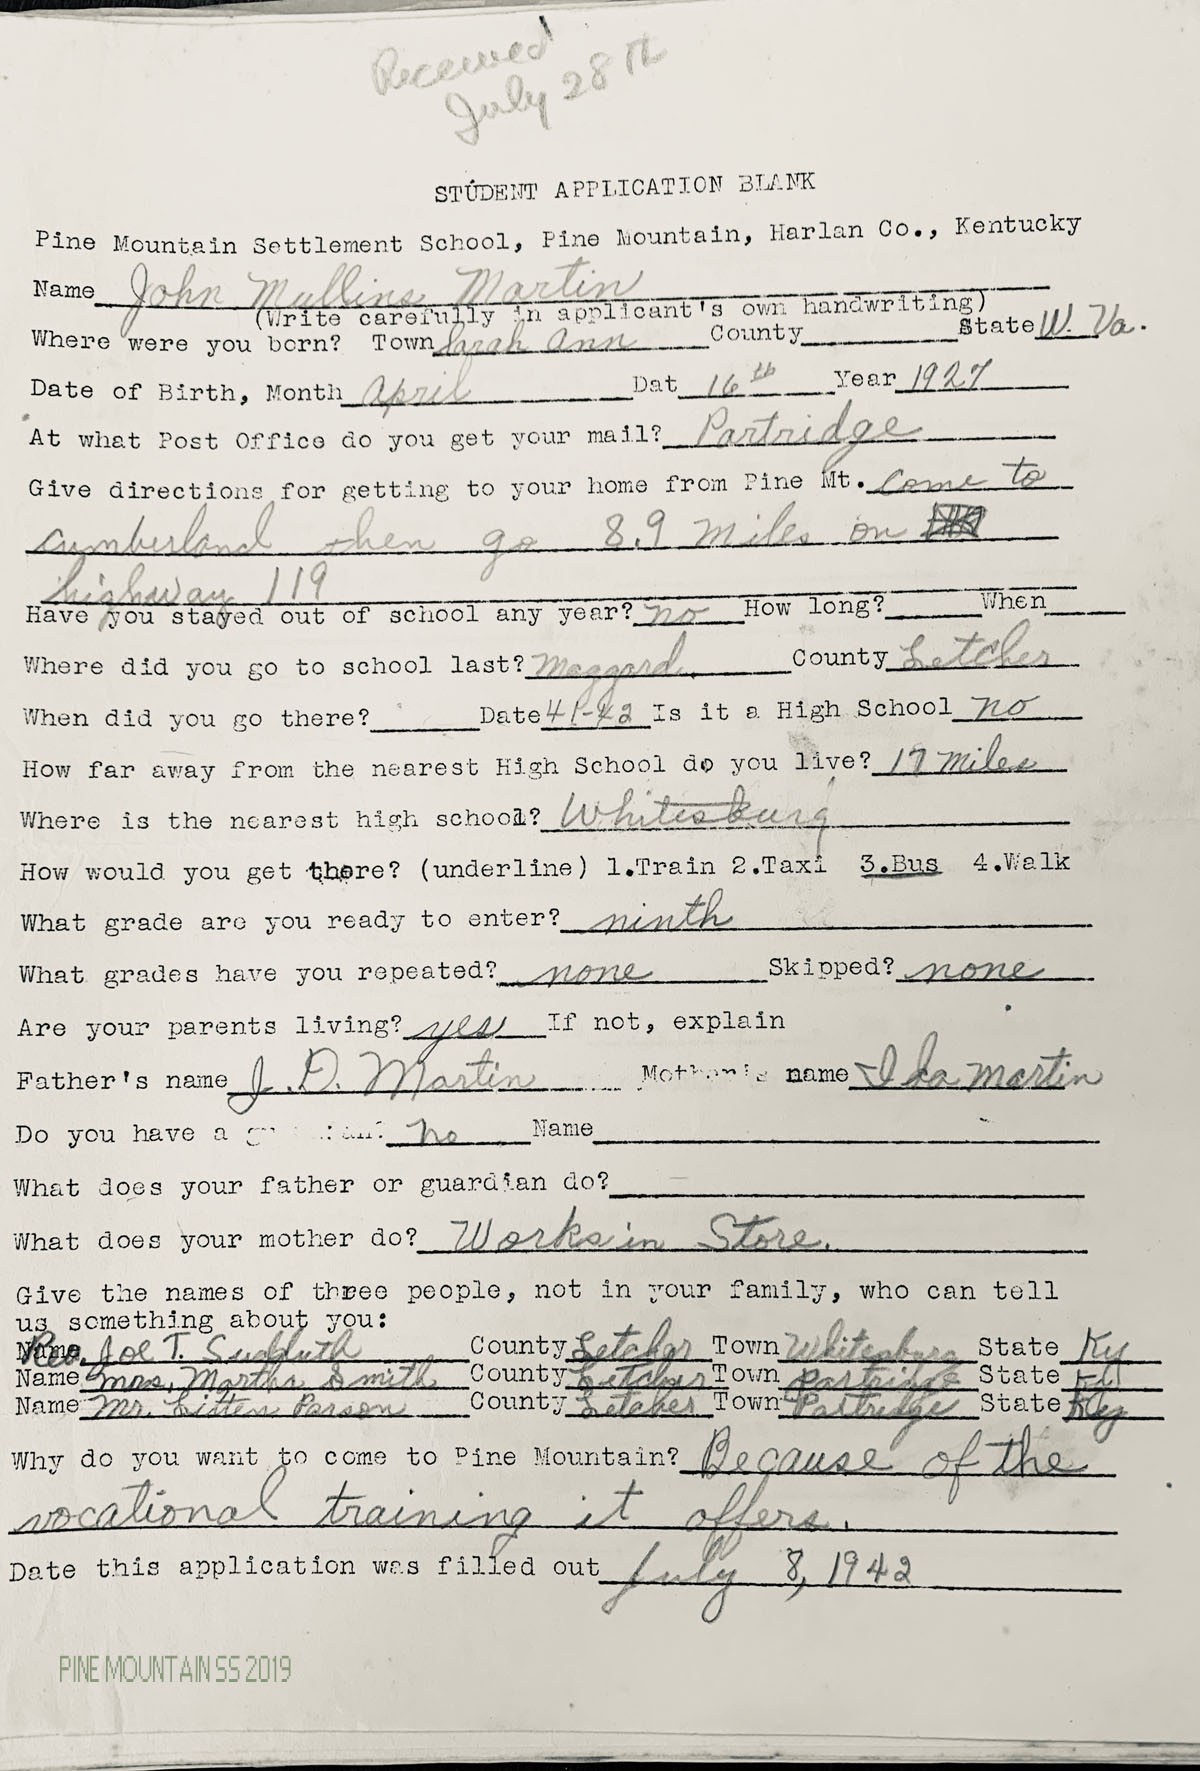 Received
July 28th
STUDENT APPLICATION BLANK
Pine Mountain Settlement School, Pine Mountain, Harlan Co., Kentucky
Name John Mullins Martin
(Write carefully in applicant's own handwriting)
Where were you born? Town Sarah Ann County State W. Va.
Date of Birth, Month April Dat 16th Year 1927
At what Post Office do you get your mail? Partridge
Give directions for getting to your home from Pine Mt. Come to
cumberland then go 8.9 miles on
highway 119
Have you stayed out of school any year? no How long? When
Where did you go to school last? Maggard County Letcher
When did you go there? Date 41-42 Is it a High School no
How far away from the nearest High School do you live? 17 miles
Where is the nearest high school? Whitesburg
How would you get there? (underline) 1.Train 2.Taxi 3.Bus 4.Walk
What grade are you ready to enter? ninth
What grades have you repeated? none Skipped? none
Are your parents living? yes If not, explain
Father's name J. D. Martin Mother's name Martin
Do you have a no Name
What does your father or guardian do?
What does your mother do? Works in Store.
Give the names of three people, not in your family, who can tell
us something about you:
Name Rev. Joe T. Sudduth County Letcher Town Whitesburg State Ky
Name Mrs. Martha Smith County Letcher Town Partridge State Ky
Name Mr. County Letcher Town Partridge State Ky
Why do you want to come to Pine Mountain? Because of the
vocational training it offers.
Date this application was filled out July 8, 1942
PINE MOUNTAIN SS 2019